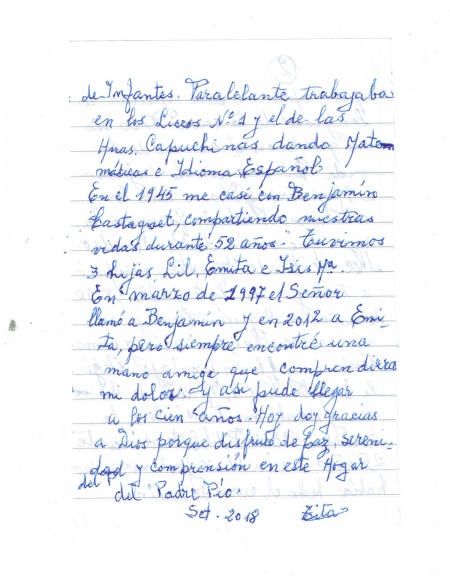 de Infantes. Paralelante trabajaba
en los Liceos Nº 1 y el de las
Hnas. Capuchinas dando Matem
máticas e Idioma Español
En el 1945 me casé con Benjamín
Castagnet, compartiendo nuestras
vidas durante 52 años." Tuvimos
3 hijas Lil, Emita e Isis Mª.
En marzo de 1997 el Señor
llamó a Benjamín y en 2012 a Emi-
ta, pero siempre encontré una
mano amiga que comprendiera
mi dolor. Y así pude llegar
a los cien años. Hoy doy gracias
a Dios porque disfruto de Paz, sereni-
dad y comprensión en este Hogar
del Padre Pío.
Set. 2018 Zita